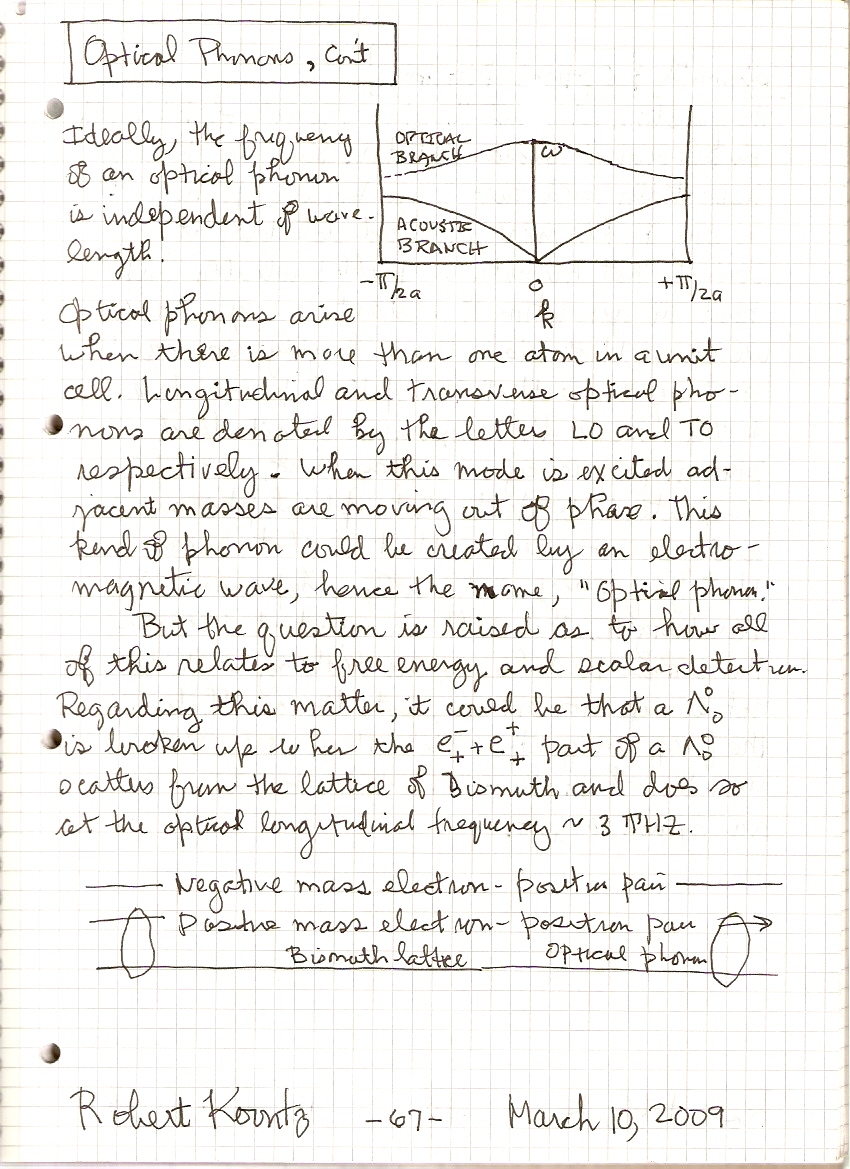 Optical Phonons, Con't
Ideally, the frequency
of an optical phonon
is independent of wave-
length.
OPTICAL
BRANCH
ω
ACOUSTIC
BRANCH
-π/2a
0
+π/2a
k
Optical phonons arise
when there is more than one atom in a unit
cell. Longitudinal and transverse optical pho-
nons are denoted by the letters LO and TO
respectively. When this mode is excited ad-
jacent masses are moving out of phase. This
kind of phonon could be created by an electro-
magnetic wave, hence the name, "Optical phonon."
But the question is raised as to how all
of this relates to free energy and scalar detection.
Regarding this matter, it could be that a Λ⁰₀
is broken up when the e⁻₊ + e⁺₊ part of a Λ⁰₀
scatters from the lattice of Bismuth and does so
at the optical longitudinal frequency ~ 3 THZ.
Negative mass electron-positron pair
Positive mass electron-positron pair
Bismuth lattice Optical phonon
Robert Koontz -67- March 10, 2009